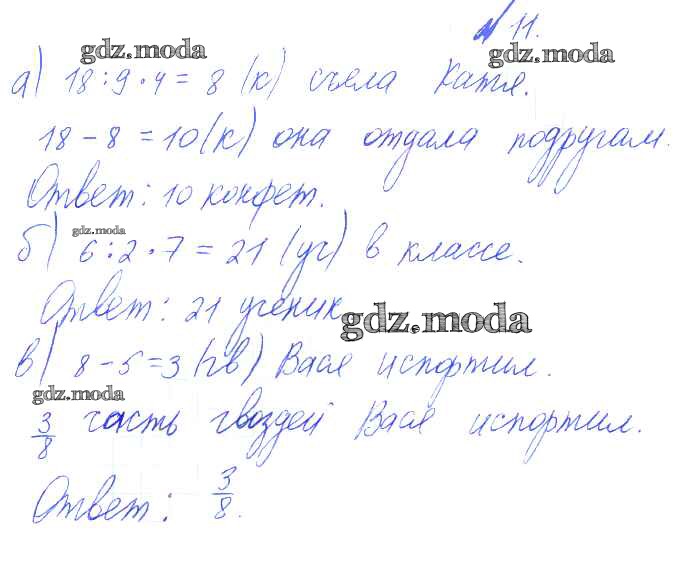 № 11.
gdz.moda gdz.moda
а) 18:9·4 = 8 (к) съела Катя.
18 - 8 = 10 (к) она отдала подругам.
Ответ: 10 конфет.
gdz.moda
б) 6:2·7 = 21 (уч) в классе.
Ответ: 21 ученик.
gdz.moda
в) 8 - 5 = 3 (гв) Вася испортил.
gdz.moda
3/8 часть гвоздей Вася испортил.
Ответ: 3/8.